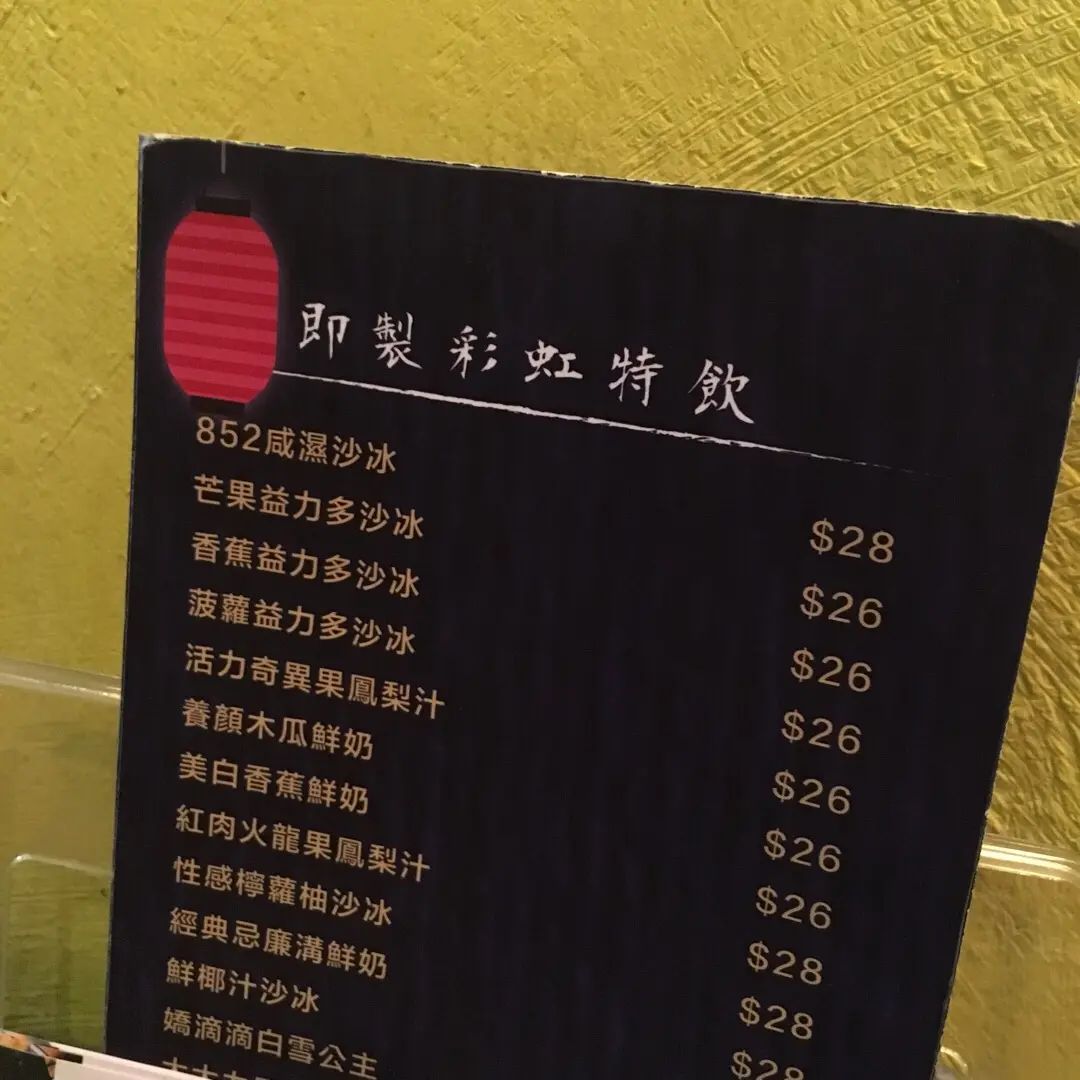 即製彩虹特飲
852咸濕沙冰 $28
芒果益力多沙冰 $26
香蕉益力多沙冰 $26
菠蘿益力多沙冰 $26
活力奇異果鳳梨汁 $26
養顏木瓜鮮奶 $26
美白香蕉鮮奶 $26
紅肉火龍果鳳梨汁 $28
性感檸蘿柚沙冰 $28
經典忌廉溝鮮奶 $28
鮮椰汁沙冰
嬌滴滴白雪公主